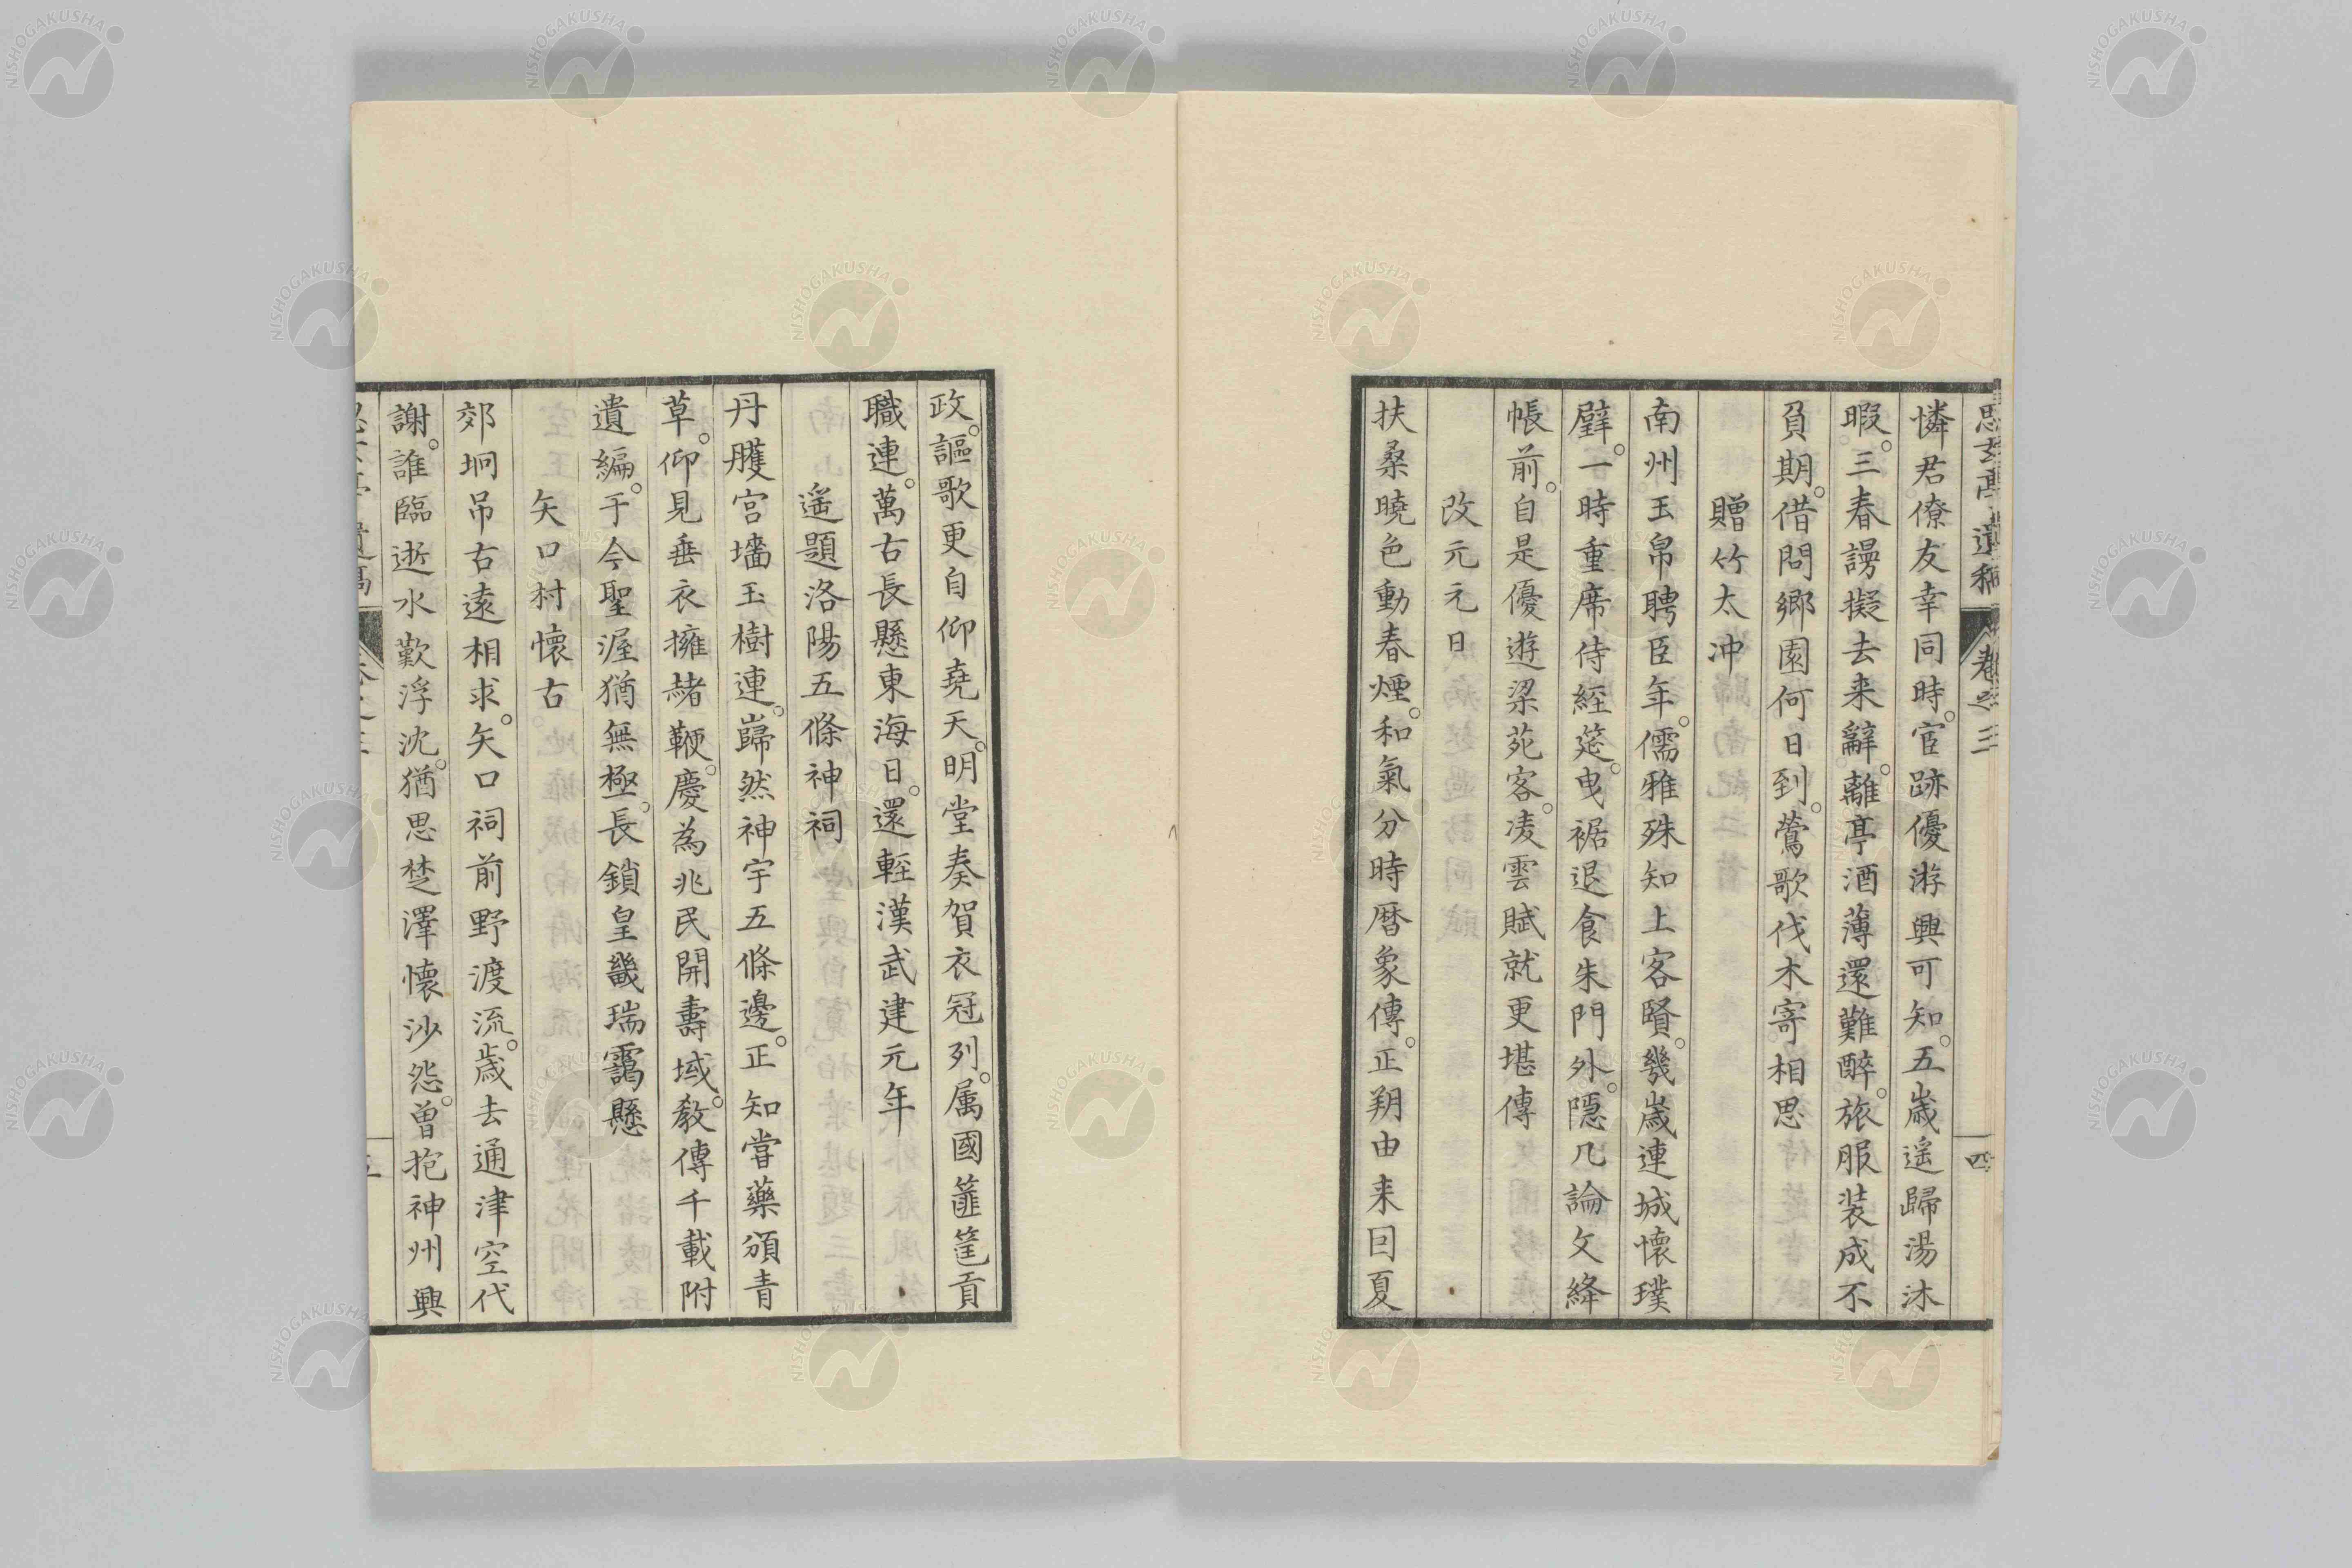 憐君僚友幸同時。官跡優游興可知。五歳遥歸湯沐
暇。三春謾擬去来辭。離亭酒薄還難醉。旅服装成不
負期。借問郷園何日到。鶯歌伐木寄相思
贈竹太冲
南州玉帛聘臣年。儒雅殊知上客賢。幾歳連城懷璞
璧。一時重席侍経筵。曳裾退食朱門外。隠几論文絳
帳前。自是優遊梁苑客。凌雲賦就更堪傳
改元元日
扶桑曉色動春煙。和氣分時暦象傳。正朔由来囘夏
政。謳歌更自仰堯天。明堂奏賀衣冠列。属國篚筐貢
職連。萬古長懸東海日。還輕漢武建元年
遥題洛陽五條神祠
丹雘宮墻玉樹連。巋然神宇五條邊。正知嘗藥頒青
草。仰見垂衣擁赭鞭。慶為兆民開壽域。教傳千載附
遺編。于今聖渥猶無極。長鎖皇畿瑞靄懸
矢口村懷古
郊坰吊古遠相求。矢口祠前野渡流。歳去通津空代
謝。誰臨逝水歎浮沈。猶思楚澤懷沙怨。曽抱神州興
思玄亭遺稿
卷之三
四
NISHOGAKUSHA